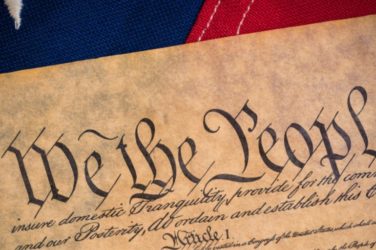 We the Peopl
insure domestic Tranquility, provide for the com
and our Posterity, do ordain and establish this
Article I.